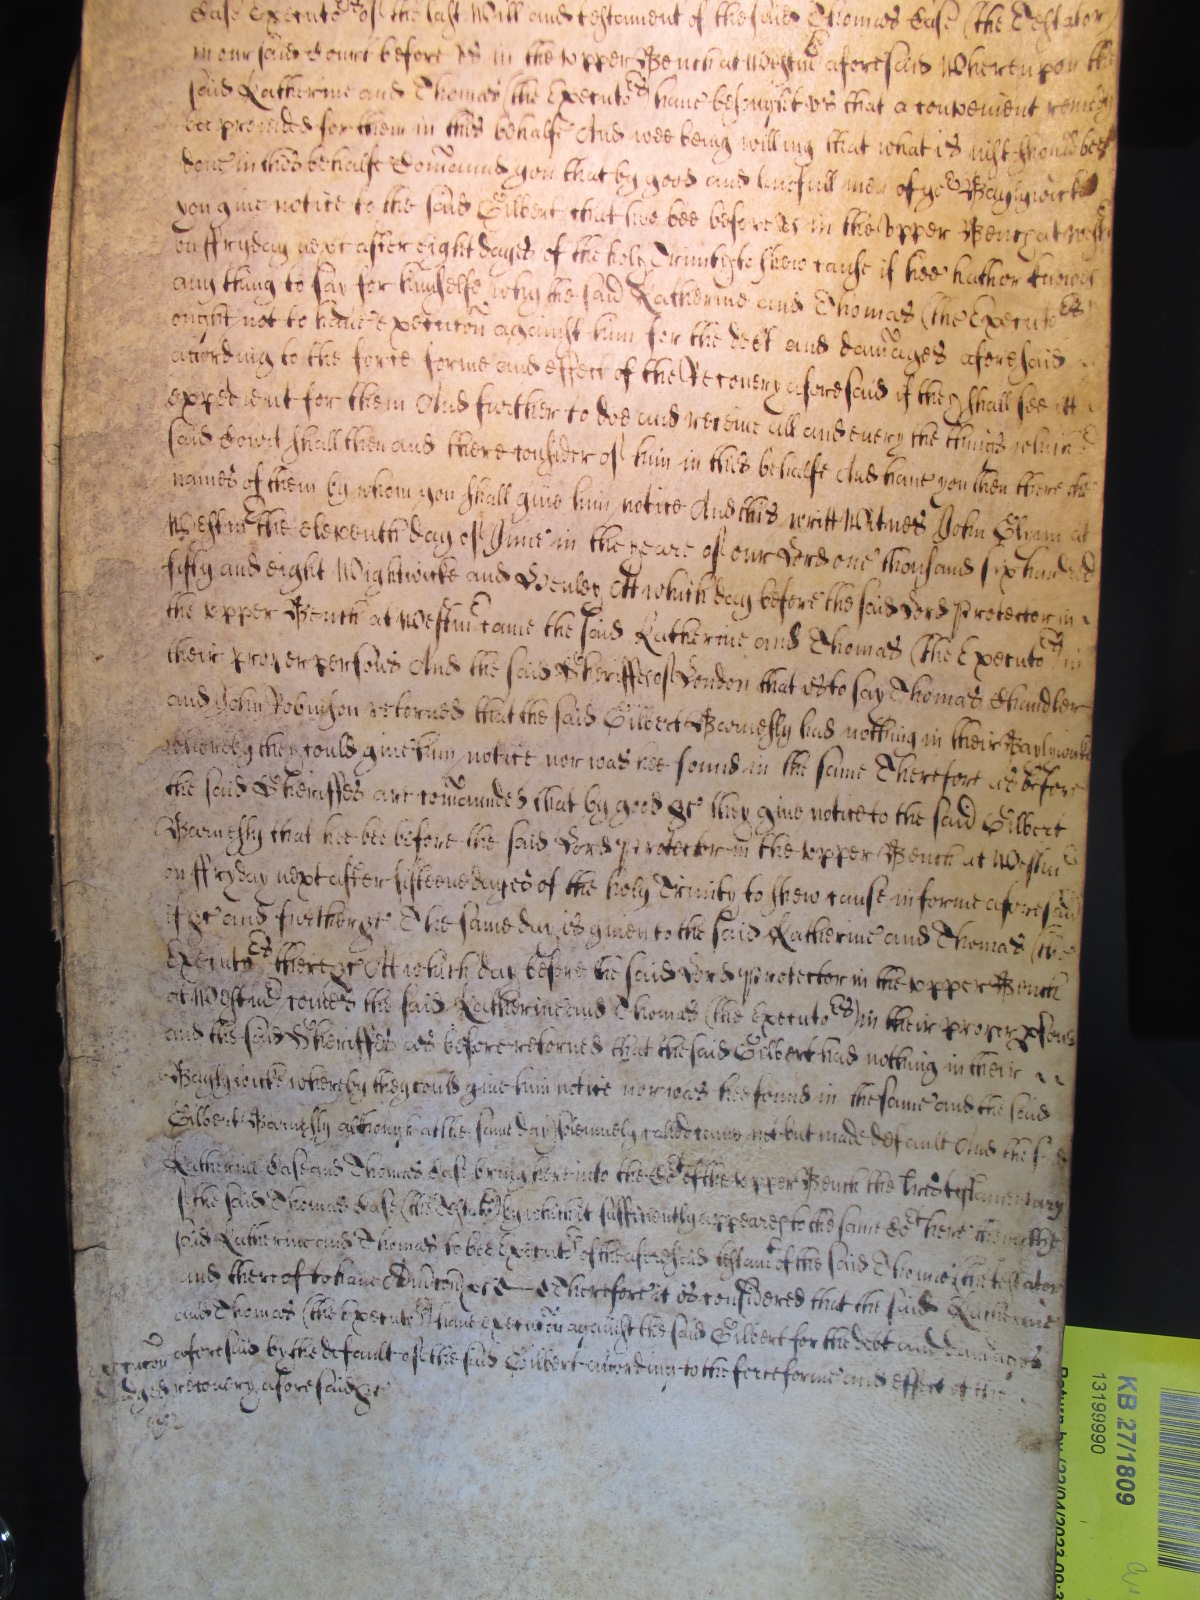 Case Execut^rs of the last Will and testament of the said Thomas Case (the Testator)
in our said Court before us in the upper Bench at Westm^r aforesaid Whereupon the
said Katherine and Thomas (the Executo^rs) have besought us that a convenient remedy
bee provided for them in this behalfe And wee being willing that what is right should bee
done in this behalfe Comaund you that by good and lawfull men of yo^r Baylywicke
you give notice to the said Gilbert that hee bee before us in the upper Bench at Westm^r
on ffryday next after eight dayes of the holy Trinity to shew cause if hee hath or knowes
any thing to say for himselfe why the said Katherine and Thomas (the Executo^rs)
ought not to have execucon against him for the debt and damages aforesaid
according to the force forme and effect of the Recovery aforesaid if they shall see itt
expedient for them And further to doe and receive all and every the things which o^r
said Court shall then and there consider of him in this behalfe And have you then there the
names of them by whom you shall give him notice And this writt Witnes John Glynn at
Westm^r the eleventh day of June in the yeare of our Lord one thousand six hundred
fifty and eight Wightwicke and Henley Att which day before the said Lord Protector in
the upper Bench at Westm^r came the said Katherine and Thomas (the Executo^rs) in
their proper persons And the said Sheriffes of London that is to say Thomas Chandler
and John Robinson retorned that the said Gilbert Barnesly had nothing in their Baylywicke
whereby they could give him notice nor was hee found in the same Therefore as before
the said Sheriffes are comaunded that by good &c they give notice to the said Gilbert
Barnesly that hee bee before the said Lord Protector in the upper Bench at Westm^r
on ffryday next after fifteene dayes of the holy Trinity to shew cause in forme aforesaid
if &c and further &c The same day is given to the said Katherine and Thomas (the
Executo^rs) there &c Att which day before the said Lord Protector in the upper Bench
at Westm^r comes the said Katherine and Thomas (the Executo^rs) in their proper psons
and the said Sheriffes as before retorned that the said Gilbert had nothing in their
Baylywicke whereby they could give him notice nor was hee found in the same and the said
Gilbert Barnesly although at the same day solemnely called came not but made default And the said
Katherine Case and Thomas Case bring here into the Co^rt of the upper Bench the l'res testamentary
of the said Thomas Case (the Testato^r) by which it sufficiently appeares to the same Co^rt here the
said Katherine and Thomas to bee Execut^rs of the aforesaid testam^t of the said Thomas (the testator
and thereof to have Admcon &c Therefore it is considered that the said Katherine
and Thomas (the Executo^rs) have execucon against the said Gilbert for the debt and damages
aforesaid by the default of the said Gilbert according to the force forme and effect of the
recovery aforesaid &c
KB 27/1809
13199990